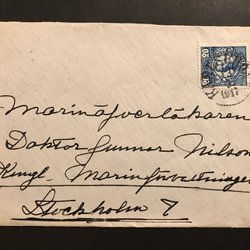 Marinöfverläkaren
Doktor Gunnar Nilson
Kungl. Marinförvaltningen
Stockholm 7